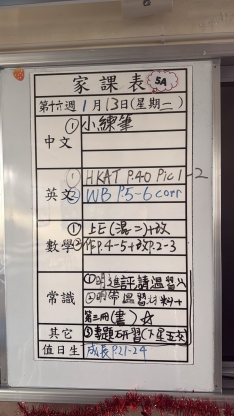 家課表 5A
第十六週 1月13日(星期二)
中文 ①小練筆
英文 ①HKAT P.40 Pic 1-2
②WB P.5-6 corr
數學 ①上E(混二)+改
②作P.4-5+改P.2-3
常識 ①明進評請溫習
②明帶溫習材料+
第三冊(書)☆
其它 ③專題研習(下星五交)
值日生 成長P.21-24